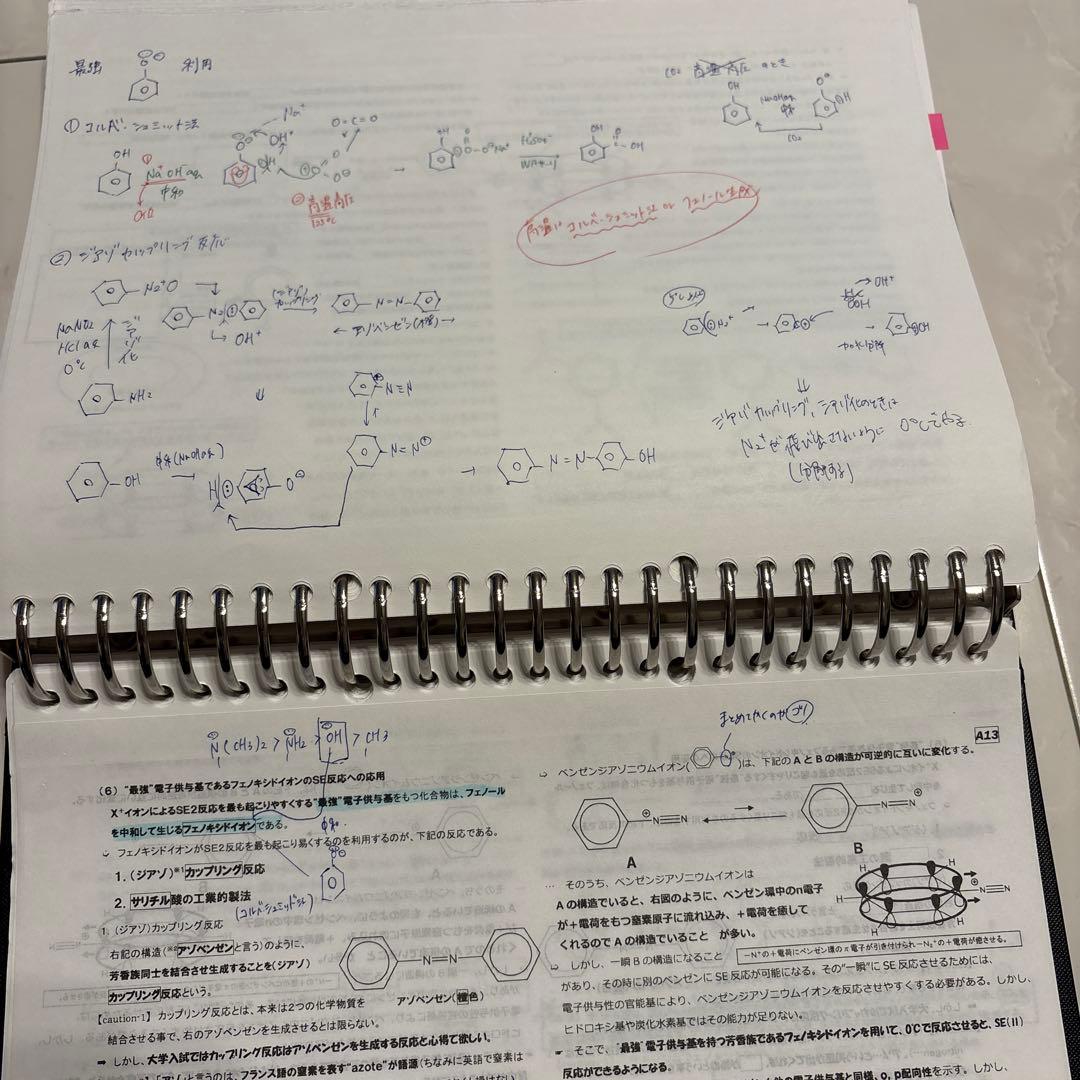 最強 利用
CO2 高温高圧 のとき
OH
NaOHaq
中和
CO2
① コルベ・シュミット法
OH
Na⁺OH⁻aq
中和
Na⁺
OH⁻
O=C=O
② 高温高圧
125℃
OH
H₂SO₄
OH
高温は コルベ・シュミット法 or フェノール生成
② ジアゾカップリング反応
N₂⁺Cl
NaNO₂
HClaq
0℃
ジアゾ化
NH₂
N=N
← アゾベンゼン(橙) →
5℃以上
加水分解
ジアゾカップリング、ジアゾ化のときは
N₂⁺が飛び出さないように 0℃で
(分解する)
N≡N
N=N⊕
OH
中和(NaOHaq)
H
O⊖
N=N OH
N(CH₃)₂ > NH₂ > OH > CH₃
(6) “最強”電子供与基であるフェノキシドイオンのSE反応への応用
X⁺イオンによるSE2反応を最も起こりやすくする“最強”電子供与基をもつ化合物は、フェノール
を中和して生じるフェノキシドイオンである。
中和
フェノキシドイオンがSE2反応を最も起こり易くするのを利用するのが、下記の反応である。
1. (ジアゾ)※1カップリング反応
2. サリチル酸の工業的製法
(コルベシュミット法)
1. (ジアゾ)カップリング反応
右記の構造(※2アゾベンゼンと言う)のように、
芳香族同士を結合させ生成することを(ジアゾ)
カップリング反応という。
N=N
アゾベンゼン(橙色)
【caution-1】カップリング反応とは、本来は2つの化学物質を
結合させる事で、右のアゾベンゼンを生成させるとは限らない。
➡ しかし、大学入試ではカップリング反応はアゾベンゼンを生成する反応と心得て欲しい。
「アゾ」と言うのは、フランス語の窒素を表す"azote"が語源(ちなみに英語で窒素は
A13
⇨ ベンゼンジアゾニウムイオン( )は、下記のAとBの構造が可逆的に互いに変化する。
N≡N
N=N
A
B
… そのうち、ベンゼンジアゾニウムイオンは
Aの構造でいると、右図のように、ベンゼン環中のπ電子
が+電荷をもつ窒素原子に流れ込み、+電荷を癒して
くれるのでAの構造でいること が多い。
H
H
H
H
N≡N
−N⁺の+電荷にベンゼン環のπ電子が引き付けられ−N₂⁺の+電荷が癒させる。
⇨ しかし、一瞬Bの構造になること
があり、その時に別のベンゼンにSE反応が可能になる。その“一瞬”にSE反応させるためには、
電子供与性の官能基により、ベンゼンジアゾニウムイオンを反応させやすくする必要がある。しかし、
ヒドロキシ基や炭化水素基ではその能力が足りない。
☛ そこで、“最強”電子供与基を持つ芳香族であるフェノキシドイオンを用いて、0℃で反応させると、SE(II)
反応ができるようになる。
基と同様、o, p配向性を示す。しかし、